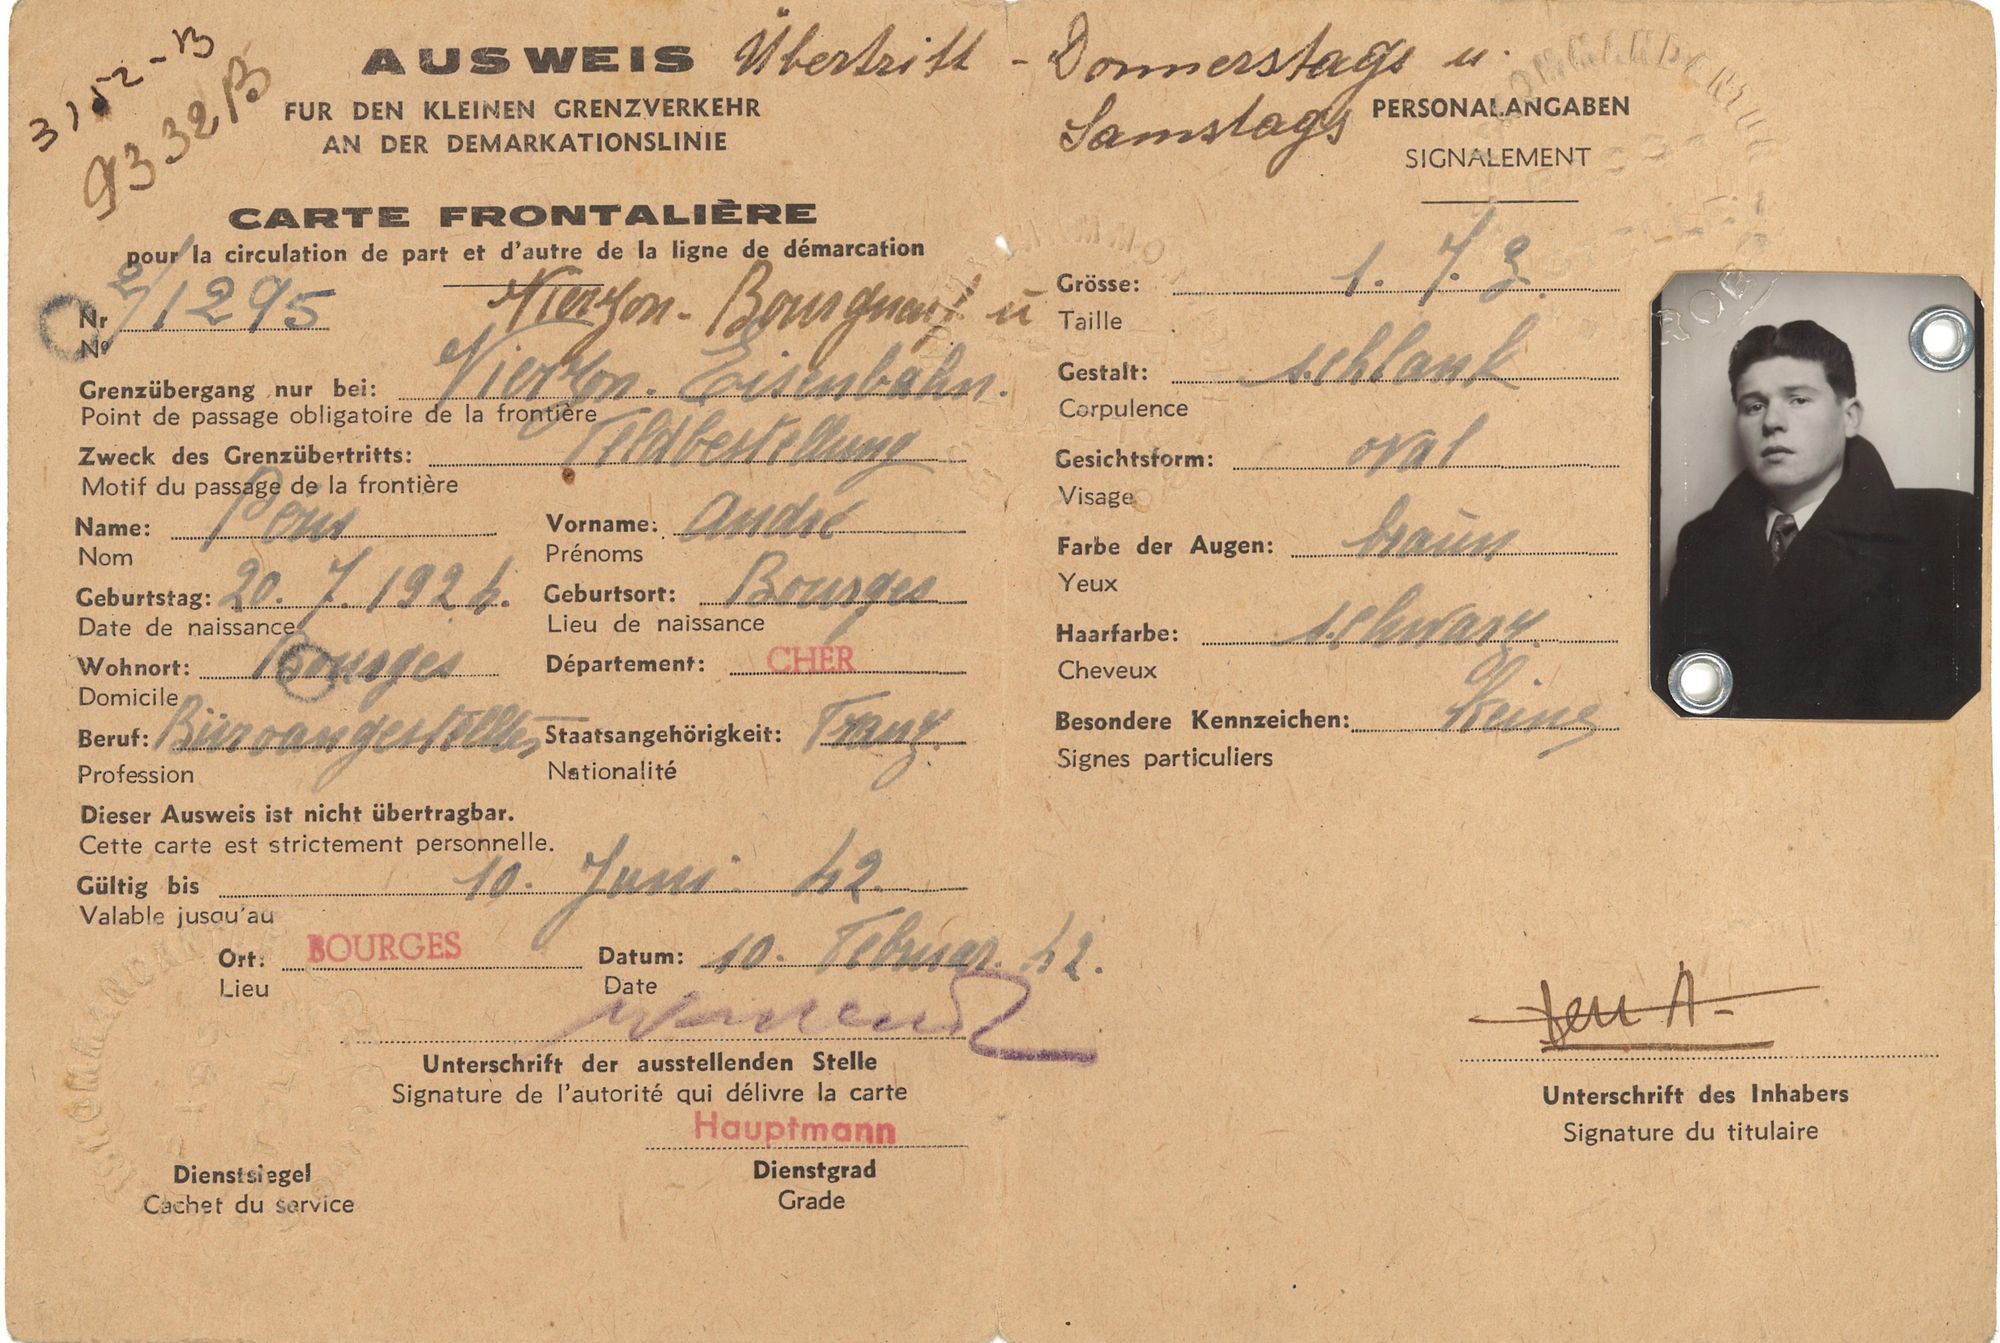 3152-B
9332B
AUSWEIS Übertritt - Donnerstags u.
Samstags
FUR DEN KLEINEN GRENZVERKEHR
AN DER DEMARKATIONSLINIE
CARTE FRONTALIÈRE
pour la circulation de part et d'autre de la ligne de démarcation
Nr 2/1295
No
Vierzon - Bourgneuf u
Grenzübergang nur bei: Vierzon. Eisenbahn.
Point de passage obligatoire de la frontière
Zweck des Grenzübertritts: Feldbestellung
Motif du passage de la frontière
Name: Vorname: André
Nom Prénoms
Geburtstag: 20. 7. 1924. Geburtsort: Bourges
Date de naissance Lieu de naissance
Wohnort: Bourges Département: CHER
Domicile
Beruf: Büroangestellter Staatsangehörigkeit: Franz.
Profession Nationalité
Dieser Ausweis ist nicht übertragbar.
Cette carte est strictement personnelle.
Gültig bis 10. Juni 42.
Valable jusqu'au
Ort: BOURGES Datum: 10. Februar. 42.
Lieu Date
Unterschrift der ausstellenden Stelle
Signature de l'autorité qui délivre la carte
Hauptmann
Dienstsiegel Dienstgrad
Cachet du service Grade
PERSONALANGABEN
SIGNALEMENT
Grösse: 1.7.3.
Taille
Gestalt: schlank
Corpulence
Gesichtsform: oval
Visage
Farbe der Augen: braun
Yeux
Haarfarbe: schwarz.
Cheveux
Besondere Kennzeichen: Keine
Signes particuliers
Unterschrift des Inhabers
Signature du titulaire